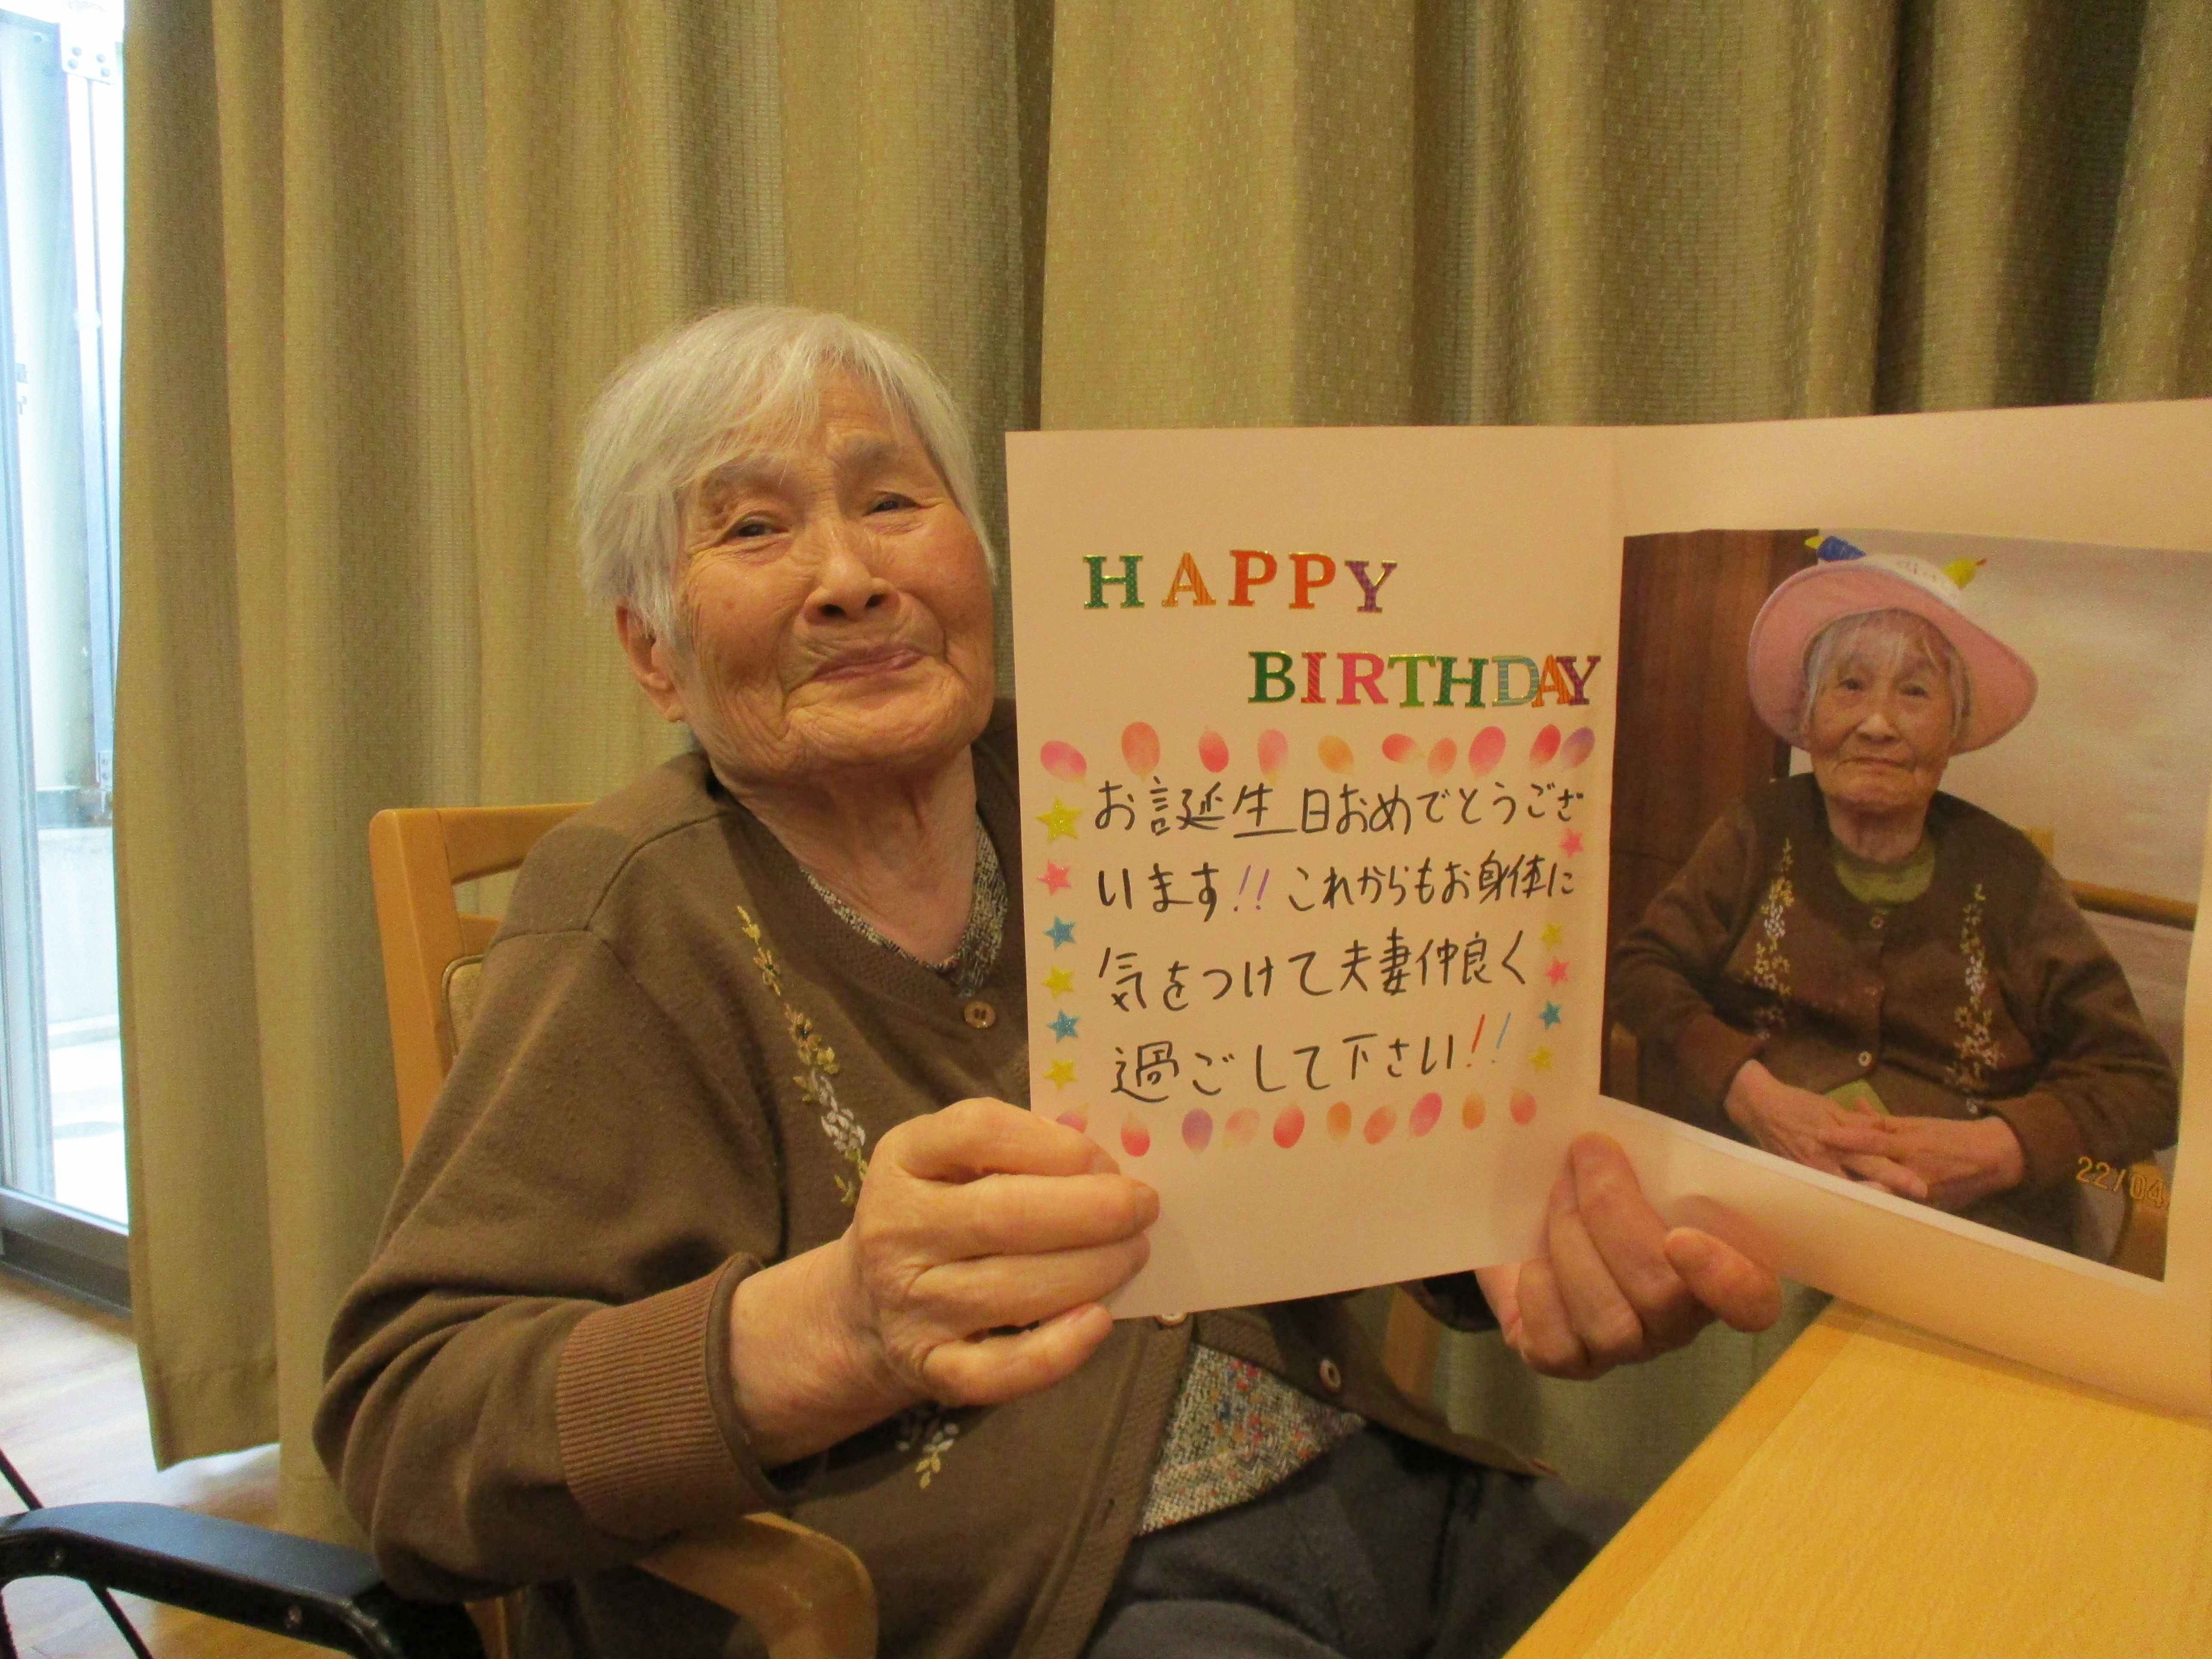 HAPPY
BIRTHDAY
お誕生日おめでとうござ
います!! これからもお身体に
気をつけて夫妻仲良く
過ごして下さい!!
22/04